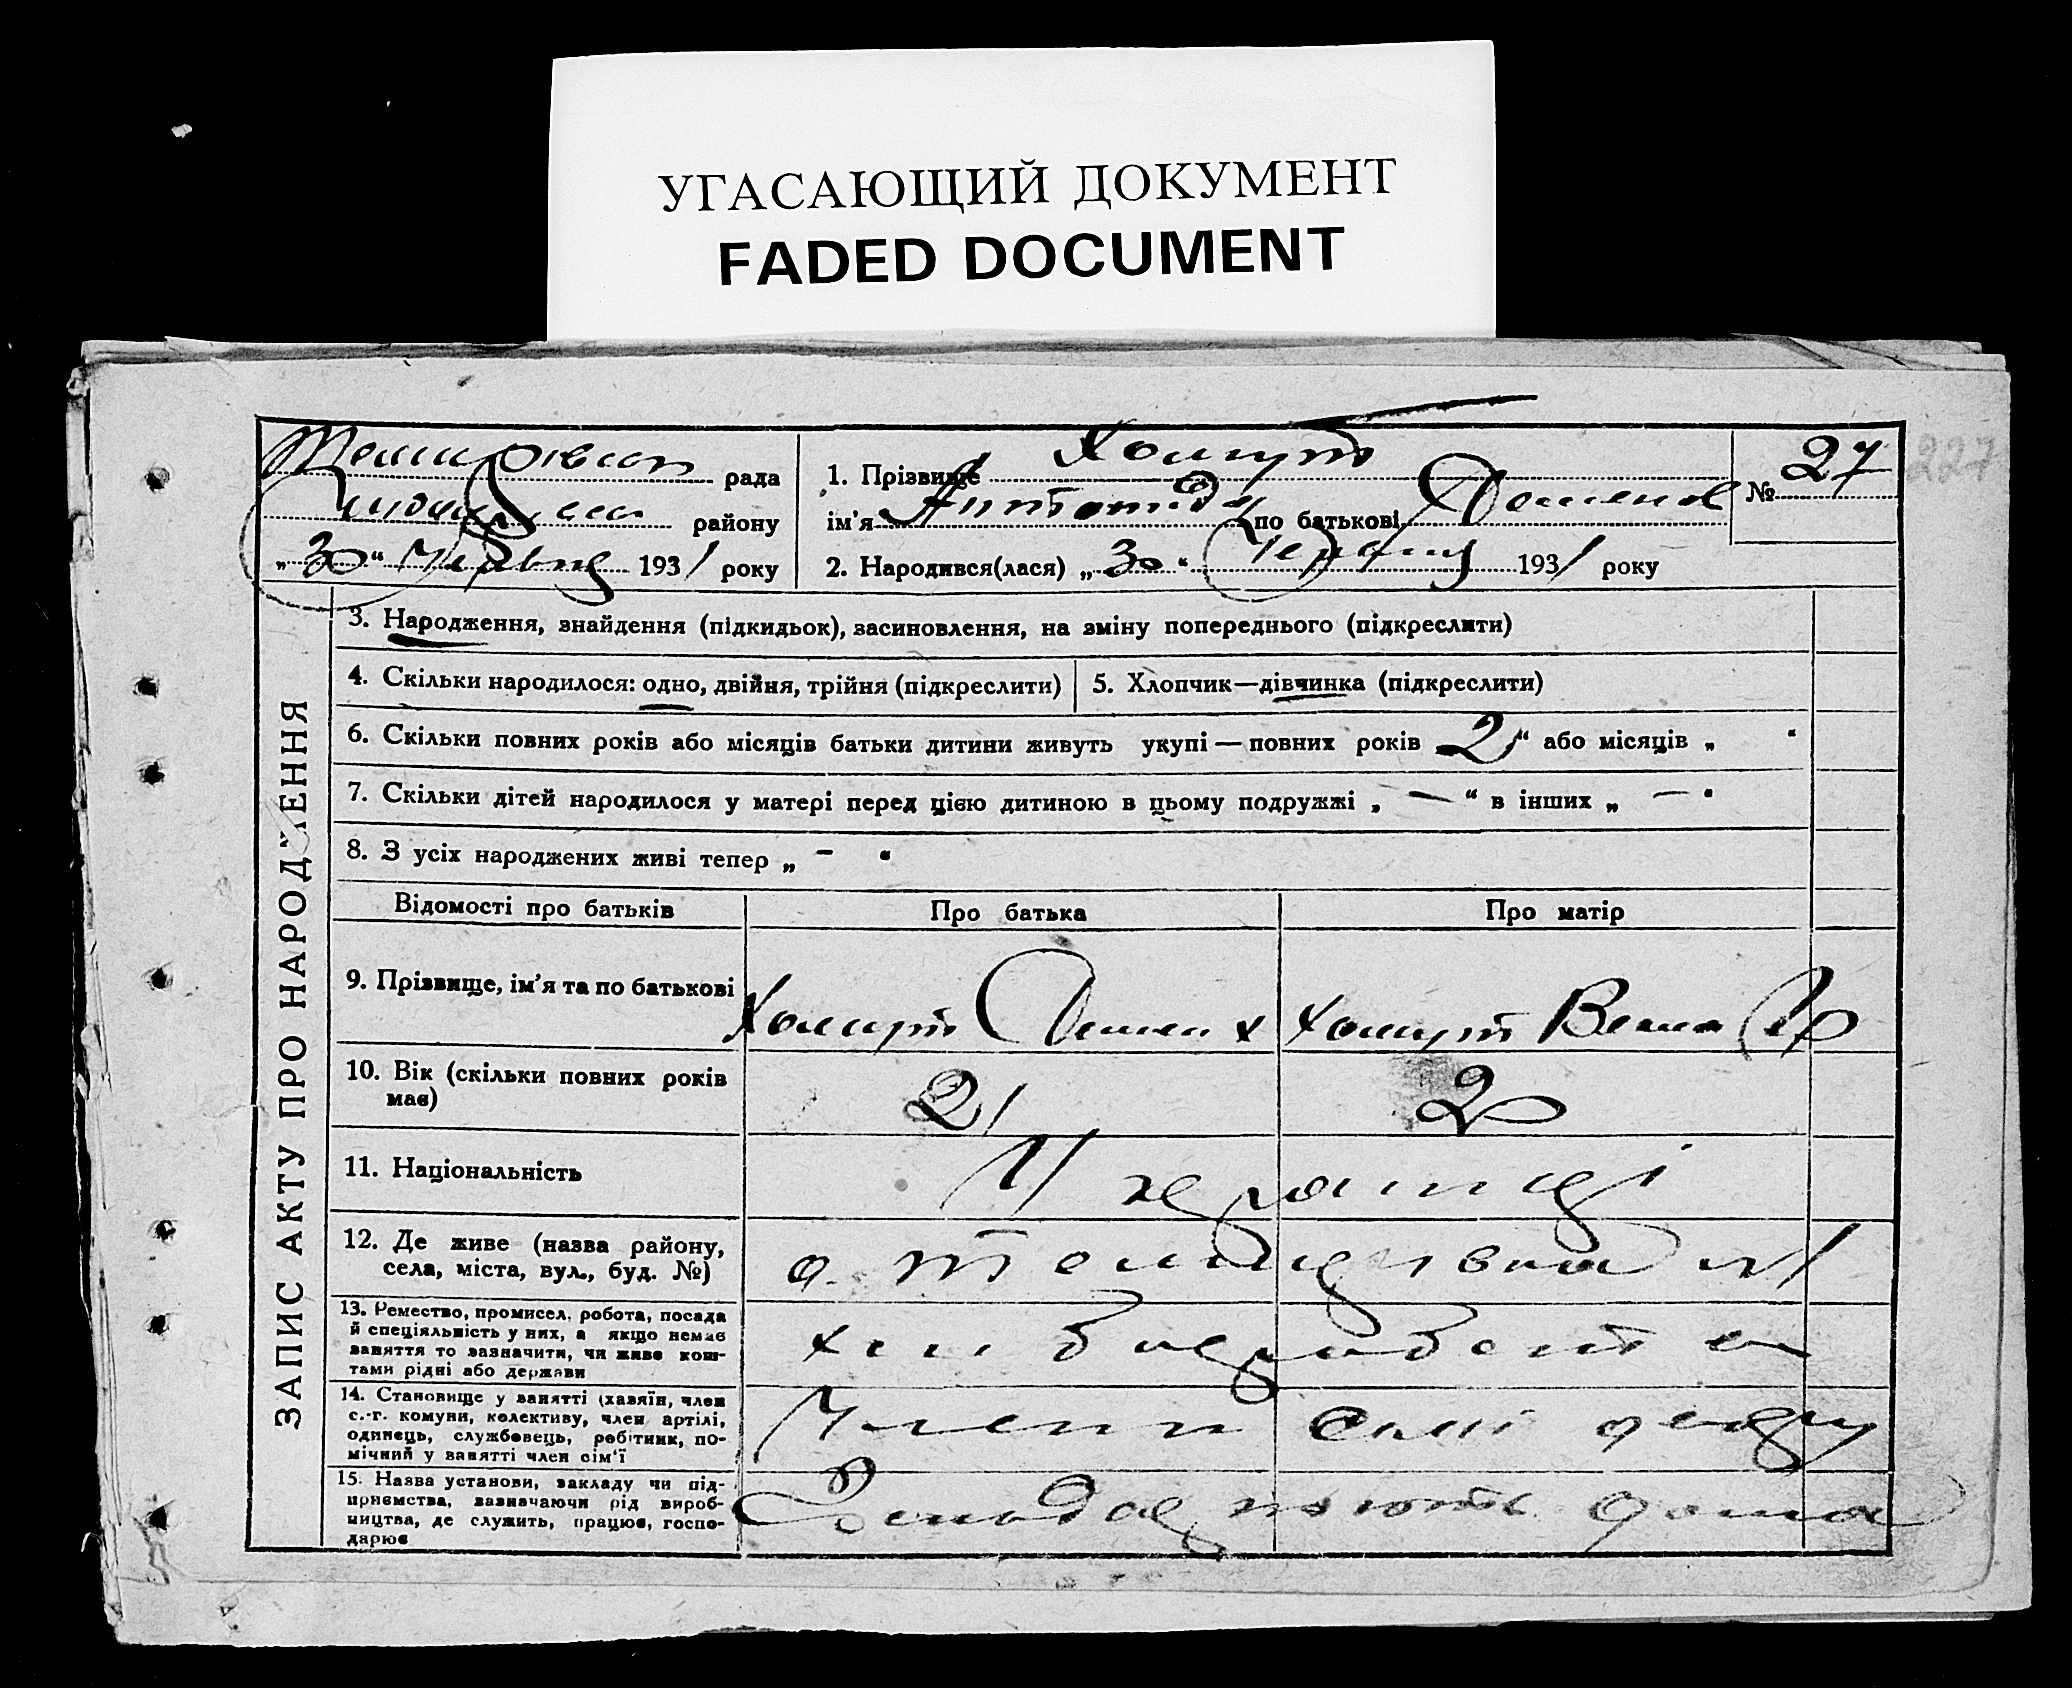 УГАСАЮЩИЙ ДОКУМЕНТ
FADED DOCUMENT
рада
району
„30“ Червня 1931 року
1. Прізвище Хомут
ім'я по батькові
2. Народився(лася) „30“ Червня 1931 року
№ 27
227
ЗАПИС АКТУ ПРО НАРОДЖЕННЯ
3. Народження, знайдення (підкидьок), засиновлення, на зміну попереднього (підкреслити)
4. Скільки народилося: одно, двійня, трійня (підкреслити)
5. Хлопчик—дівчинка (підкреслити)
6. Скільки повних років або місяців батьки дитини живуть укупі — повних років 2 “ або місяців „ “
7. Скільки дітей народилося у матері перед цією дитиною в цьому подружжі „ — “ в інших „ — “
8. З усіх народжених живі тепер „ - “
Відомості про батьків
Про батька
Про матір
9. Прізвище, ім'я та по батькові
Хомут
Хомут
10. Вік (скільки повних років
має)
21
20
11. Національність
Українці
12. Де живе (назва району,
села, міста, вул., буд. №)
13. Ремество, промисел, робота, посада
й спеціяльність у них, а якщо немає
заняття то зазначити, чи живе кош-
тами рідні або держави
хліборобство
14. Становище у занятті (хазяїн, член
с.-г. комуни, колективу, член артілі,
одинець, службовець, робітник, по-
мічний у занятті член сім'ї
Члени
15. Назва установи, закладу чи під-
приємства, зазначаючи рід вироб-
ництва, де служить, працює, госпо-
дарює